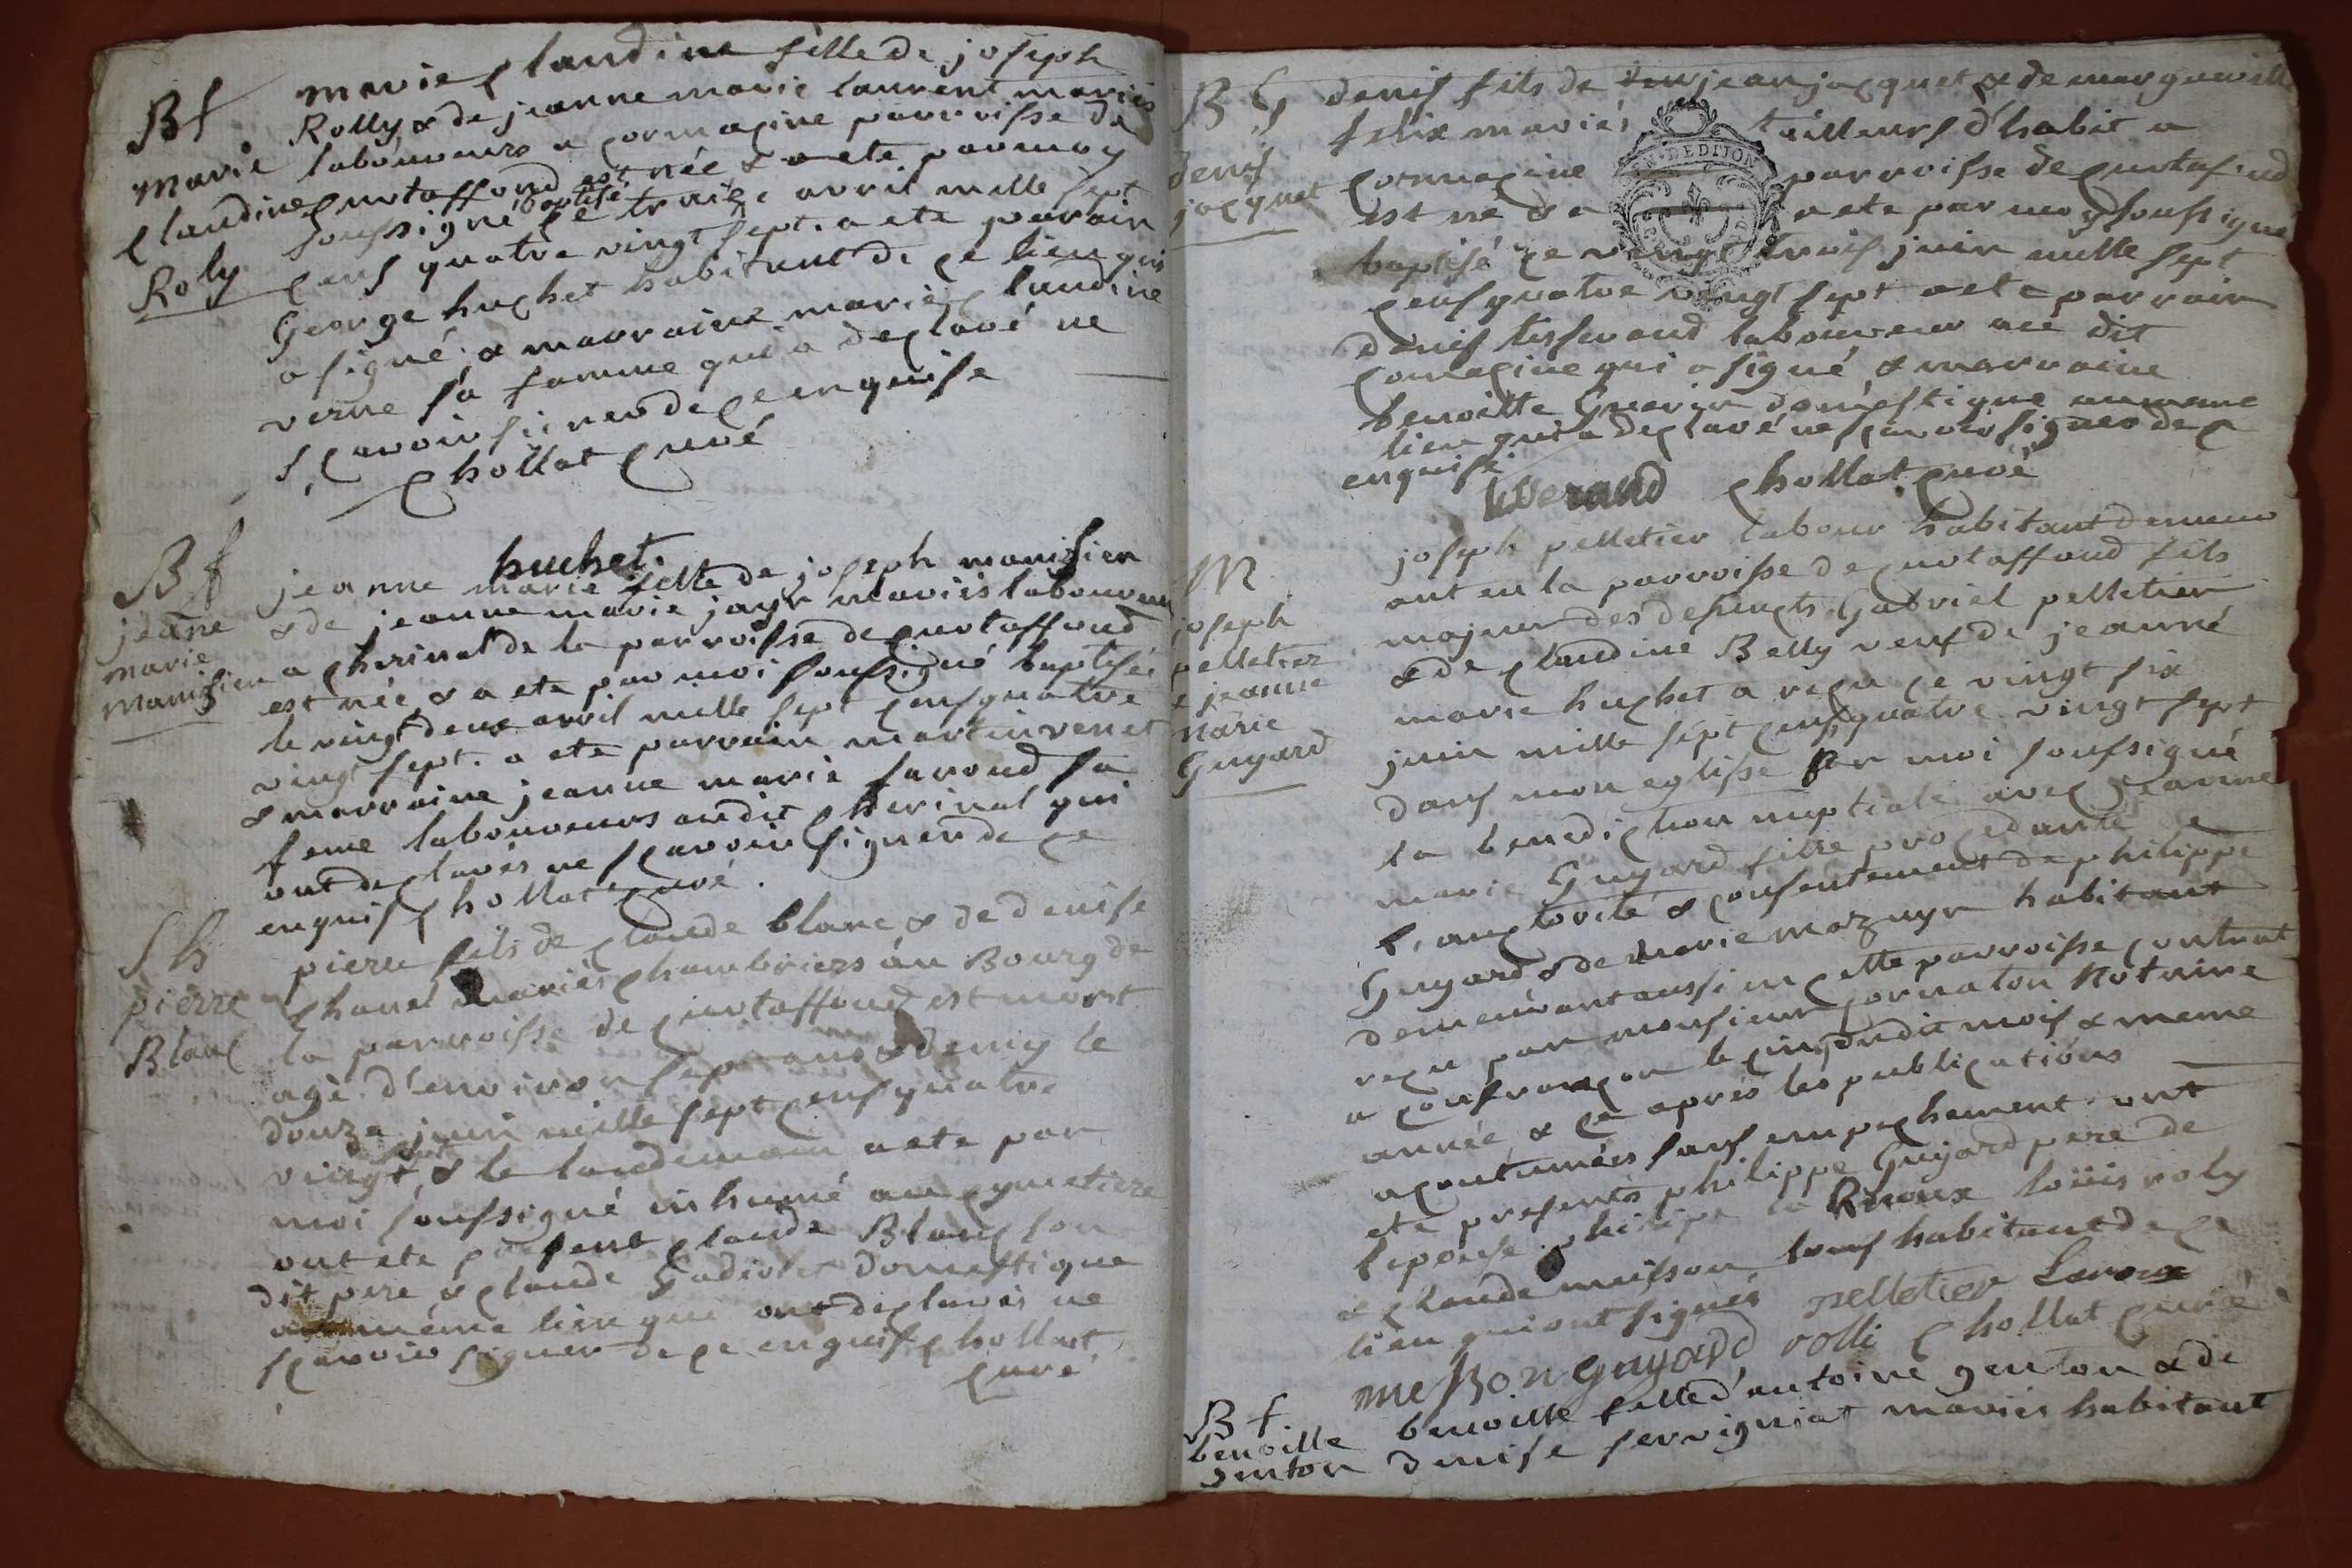 Bf
marie
claudine
Roly
marie claudine fille de joseph
Rolly & de jeanne marie laurent mariés
laboureurs a cormagine parroisse de
curtaffond est née & a ete par moy
soussigné baptisé ce traize avril mille sept
cens quatre vingt sept. a ete parain
George huchet habitant de ce lieu qui
a signé, & marraine marie claudine
verne sa famme qui a declaré ne
sçavoir signer de ce enquise
chollat curé
huchet.
Bf
jeane
marie
manisien
jeanne marie fille de joseph manisien
& de jeanne marie jayr mariés laboureurs
a cherinal de la parroisse de curtaffond
est née & a ete par moi soussigné baptisée
le vingt deux avril mille sept cens quatre
vingt sept. a ete parrain martin venet
& marraine jeanne marie faroud sa
feme laboureurs audit cherinal qui
ont declarés ne sçavoir signer de ce
enquis chollat curé.
Sh
pierre
Blanc
pierre fils de claude blanc & de denise
chanel mariés chambriers au Bourg de
la parroisse de curtaffond est mort
agé d'environ sept ans & demy le
douze juin mille sept cens quatre
vingt sept & le landemain a ete par
moi soussigné inhumé au cymetiere
ont ete present claude Blanc son
dit pere & claude Gadiolet domestique
au même lieu que ont declarés ne
sçavoir signer de ce enquis chollat
curé
B G
denis
jacquet
denis fils de jean jacquet & de marguerite
felix mariés tailleurs d'habit a
cormagine parroisse de curtafond
est né & a a ete par moy soussigné
baptisé ce vingt trois juin mille sept
cens quatre vingt sept a ete parrain
denis tisserand laboureur au dit
comagine qui a signé & marraine
benoitte Guerin domestique au meme
lieu qui a declaré ne sçavoir signer de ce
enquise.
tisserand chollat curé
M
joseph
pelletier
& jeanne
marie
Guyard
joseph pelletier labour habitant demeur
ant en la parroisse de curtaffond fils
majeur des defuncts Gabriel pelletier
& de claudine Belly veuf de jeanne
marie huchet a reçu ce vingt six
juin mille sept cens quatre vingt sept
dans mon eglisse par moi soussigné
la benediction nuptiale avec jeanne
marie Guyard fille procedante de
l'auctorité & consentement de philippe
Guyard & de marie mazuyr habitant
demeurant aussi en cette parroisse contrat
reçu par monsieur cornaton Notaire
a confrançon le cinq dudit mois & meme
année, & ce apres les publications
acoutumées sans empechement. ont
ete presents philippe Guyard pere de
l'epouse philipe la Riroux loüis roly
& claude meisson tous habitant de ce
lieu qui ont signés pelletier Laroux
messon guyard rolli chollat curé
Bf
benoitte
genton
benoitte fille d'antoine genton & de
denise servigniat mariés habitant
EN·DEDITION